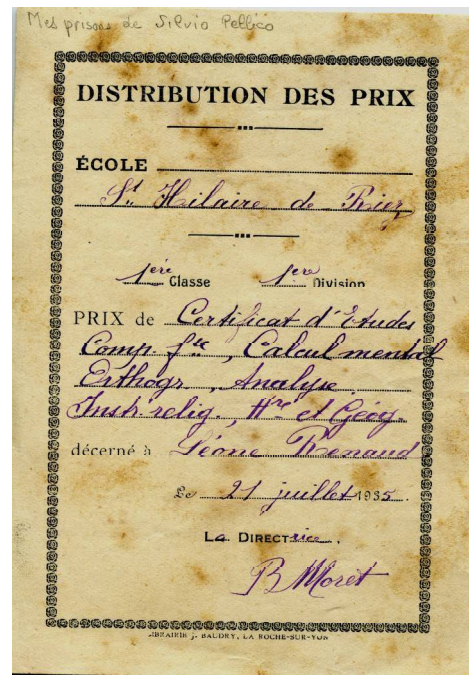 Mes prisons de Silvio Pellico
DISTRIBUTION DES PRIX
ÉCOLE
St Hilaire de Riez
1ère Classe 1ère Division
PRIX de Certificat d'Etudes
Comp. fse, Calcul mental
Orthogr, Analyse
Instr. relig, Hre et Géog
décerné à Léone Renaud
Le 21 juillet 1935.
LA DIRECTrice.
B Moret
LIBRAIRIE J. BAUDRY, LA ROCHE-SUR-YON